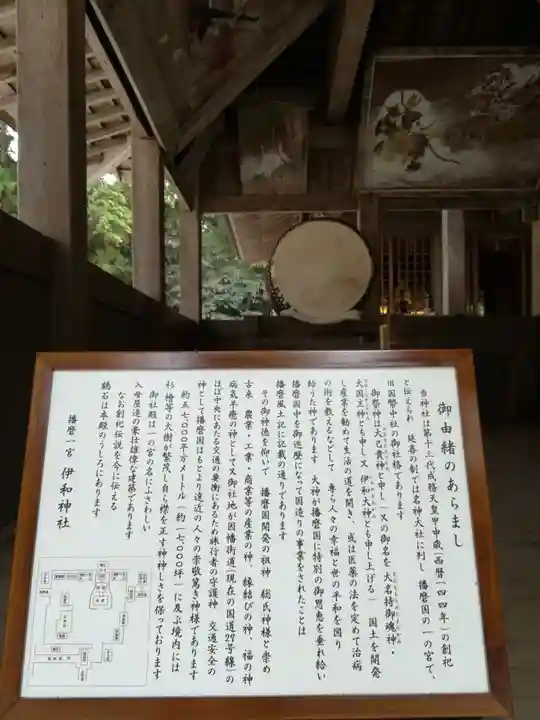 御由緒のあらまし
当神社は第十三代成務天皇甲申歳(西暦一四四年)の創祀
と伝えられ 延喜の制では名神大社に列し 播磨国の一の宮で、
旧国幣中社の御社格であります
御祭神は大己貴神と申し(又の御名を 大名持御魂神・
大国主神とも申し又 伊和大神とも申し上げる) 国土を開発
し産業を勧めて生活の道を開き、或は医薬の法を定めて治病
の術を教えるなどして 専ら人々の幸福と世の平和を図り
給うた神であります 大神が播磨国に特別の御恩恵を垂れ給い
播磨国中を御巡歴になって国造りの事業をされたことは
播磨風土記に記載の通りであります
その御神徳を仰いで 播磨国開発の祖神 総氏神様と崇め
古来 農業・工業・商業等の産業の神、縁結びの神、福の神
病気平癒の神として又御社地が因幡街道(現在の国道29号線)の
ほぼ中央にあたる交通の要衝にあるため旅行者の守護神 交通安全の
神として播磨国はもとより遠近の人々の崇敬篤き神様であります
約五七、〇〇〇平方メートル(約一七、〇〇〇坪)に及ぶ境内には
杉 檜等の大樹が繁茂し自ら襟を正す神々しさを保っております
御社殿は一の宮の造にふさわしい
入母屋造の豪壮雄偉な建築であります
なお創祀伝説を今に伝える
鶴石は本殿のうしろにあります
播磨一宮 伊和神社